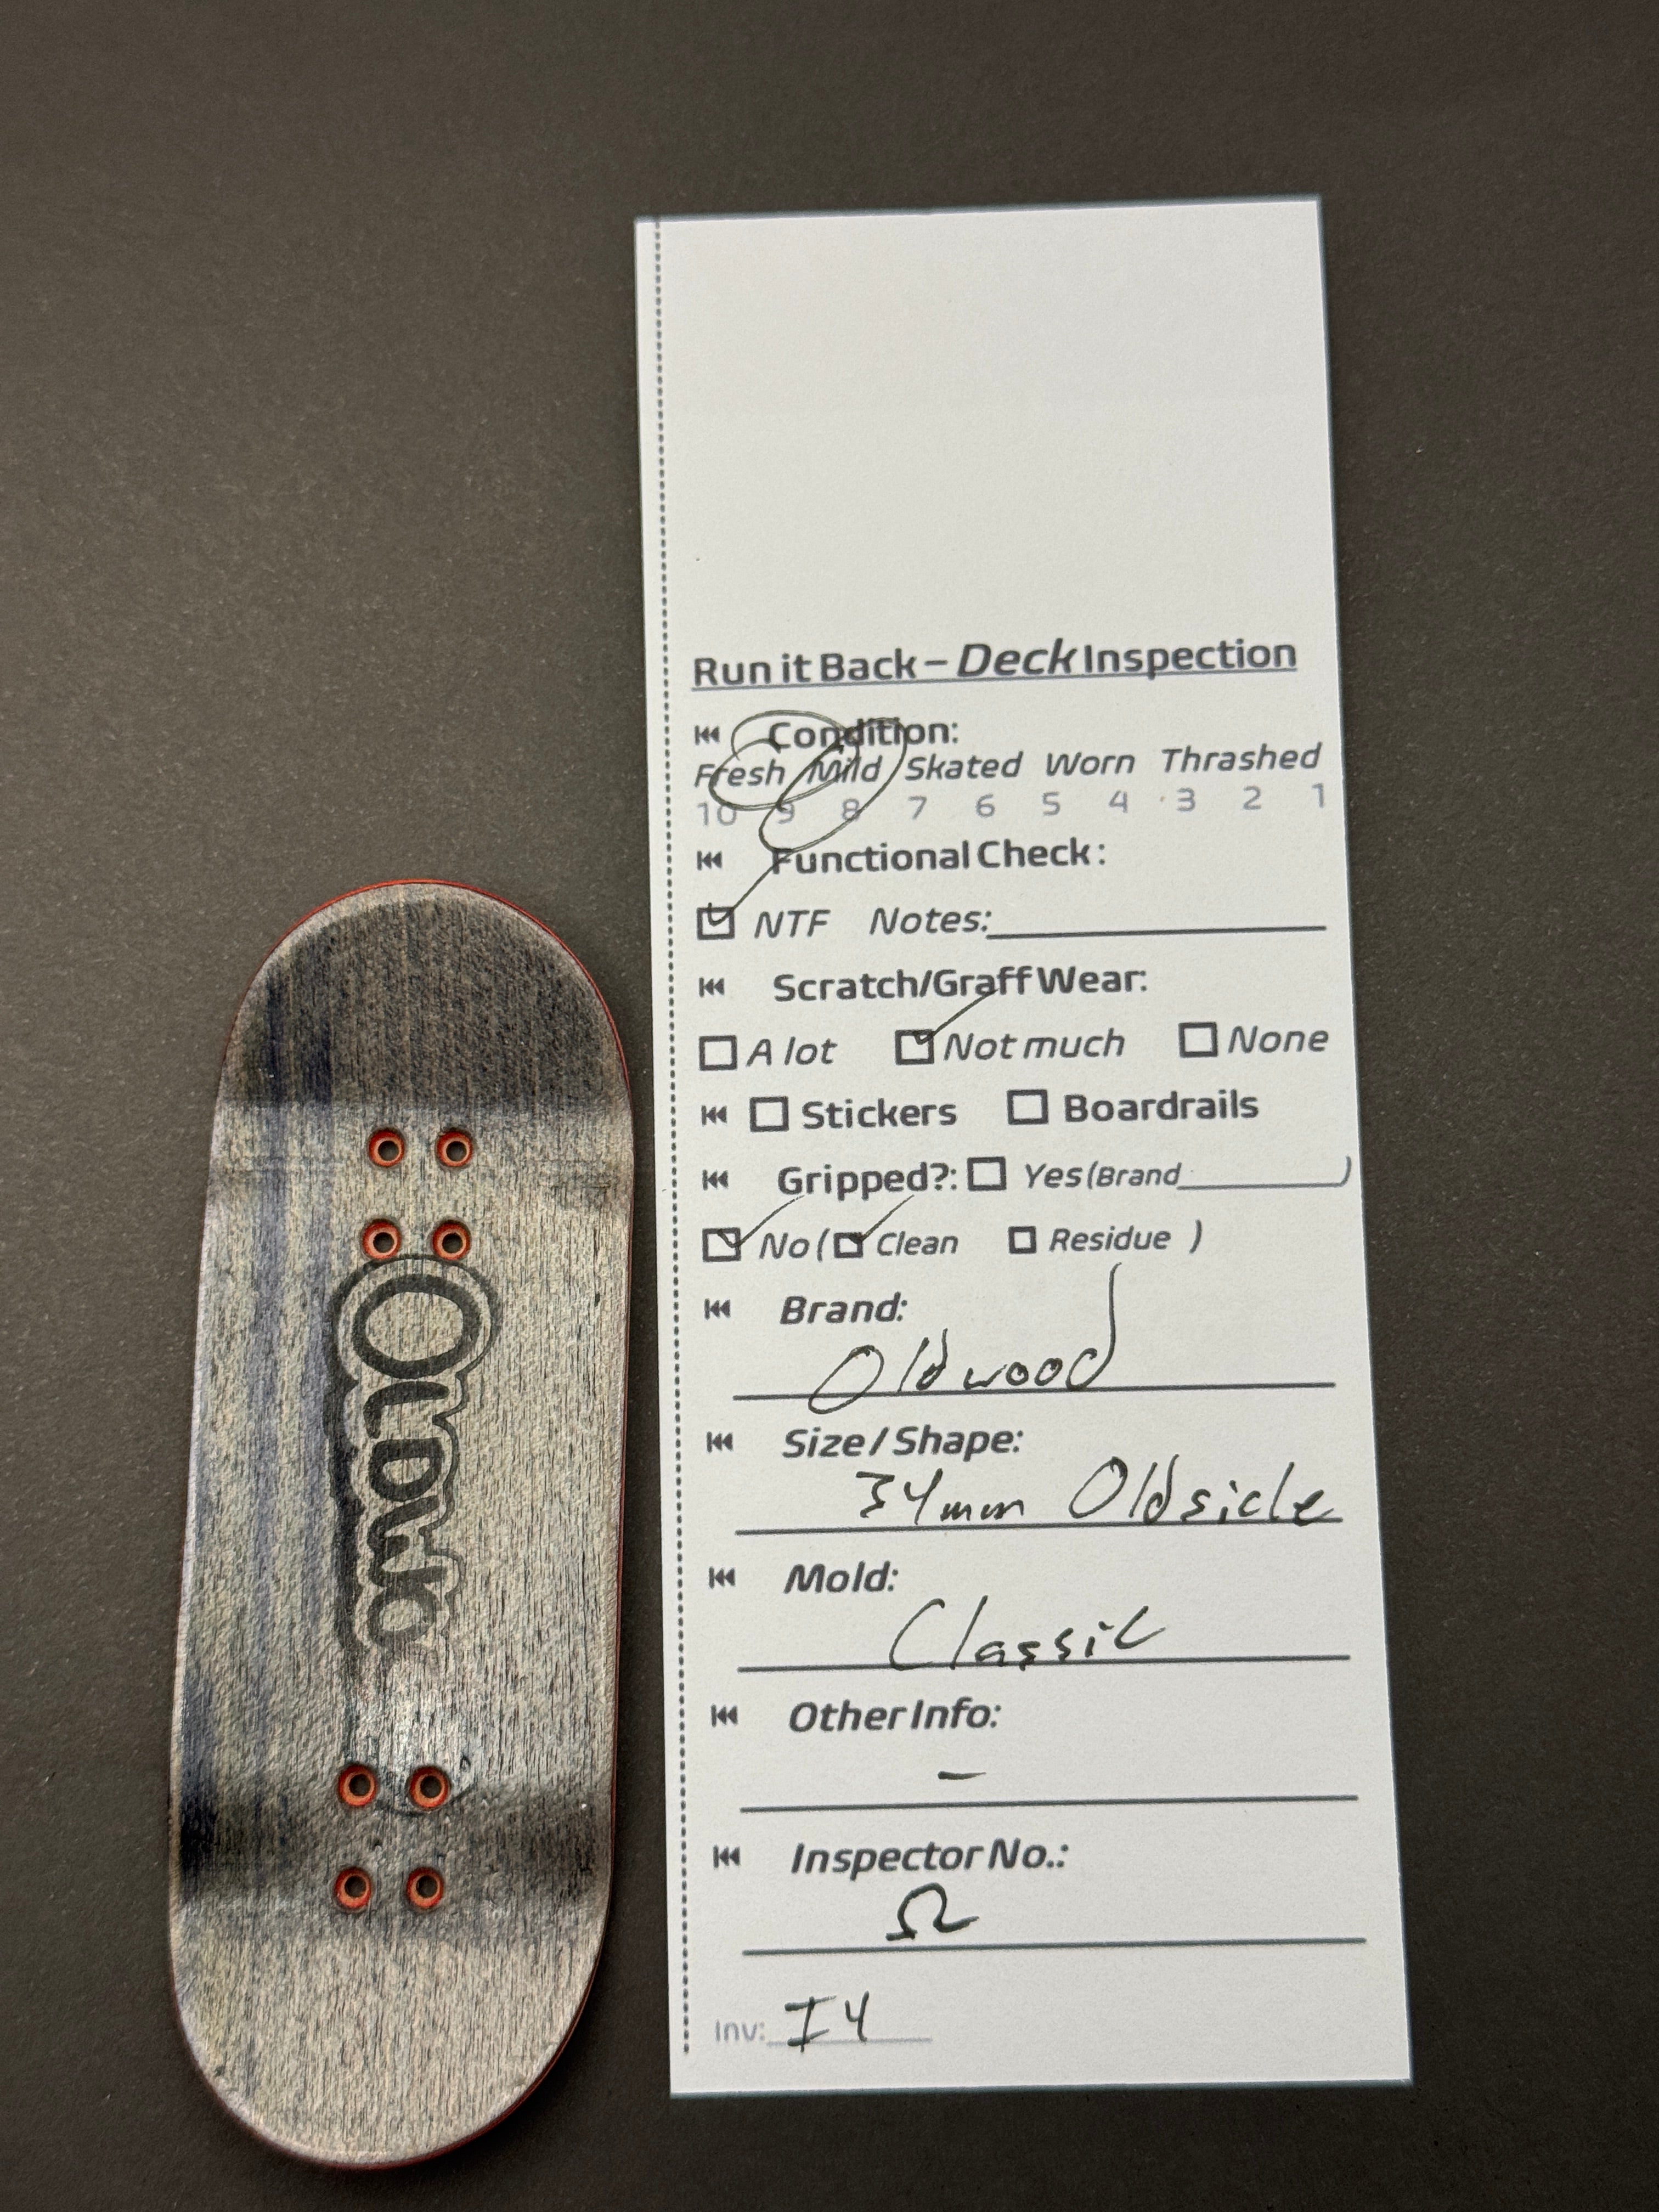 Run it Back – Deck Inspection
Condition:
Fresh Mild Skated Worn Thrashed
10 9 8 7 6 5 4 3 2 1
Functional Check:
NTF Notes:
Scratch/Graff Wear:
A lot Not much None
Stickers Boardrails
Gripped?: Yes (Brand )
No ( Clean Residue )
Brand:
Oldwood
Size / Shape:
34mm Oldsicle
Mold:
Classic
Other Info:
–
Inspector No.:
Ω
Inv: I4